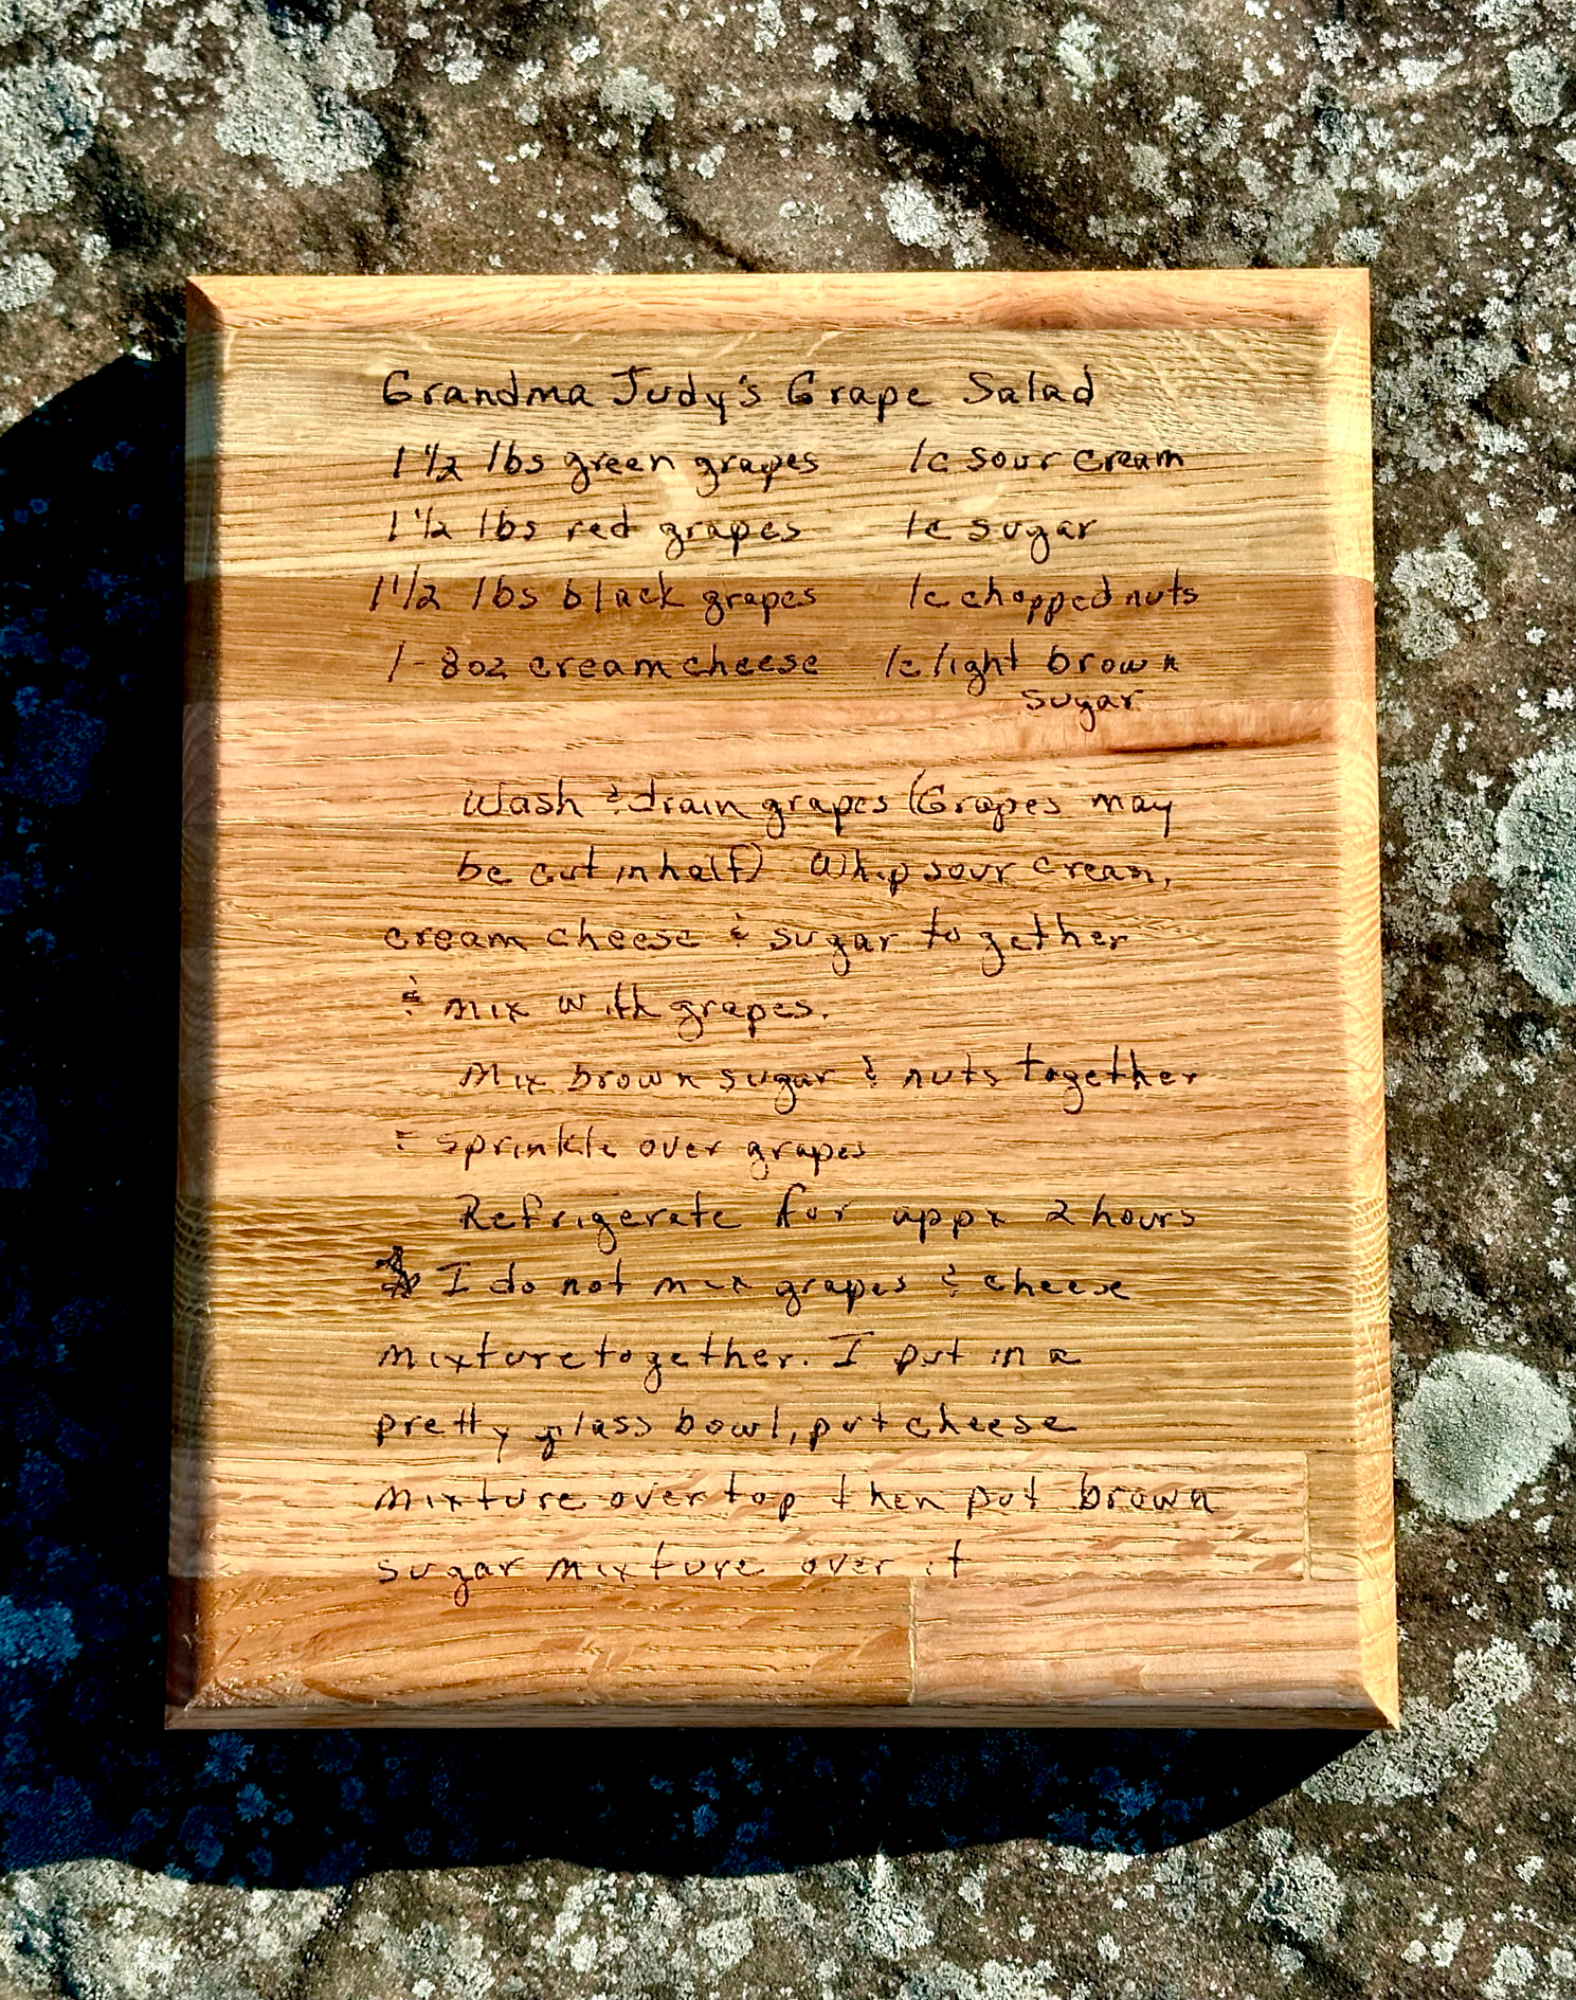 Grandma Judy's Grape Salad
1 1/2 lbs green grapes 1c sour cream
1 1/2 lbs red grapes 1c sugar
1 1/2 lbs black grapes 1c chopped nuts
1-8oz cream cheese 1c light brown
sugar
Wash & drain grapes (Grapes may
be cut in half) Whip sour cream,
cream cheese & sugar together
& mix with grapes.
Mix brown sugar & nuts together
& sprinkle over grapes
Refrigerate for appx 2 hours
I do not mix grapes & cheese
mixture together. I put in a
pretty glass bowl, put cheese
mixture over top then put brown
sugar mixture over it